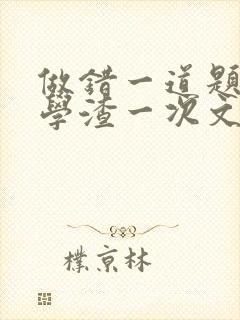 做錯一道題
學渣一次文
樸京林